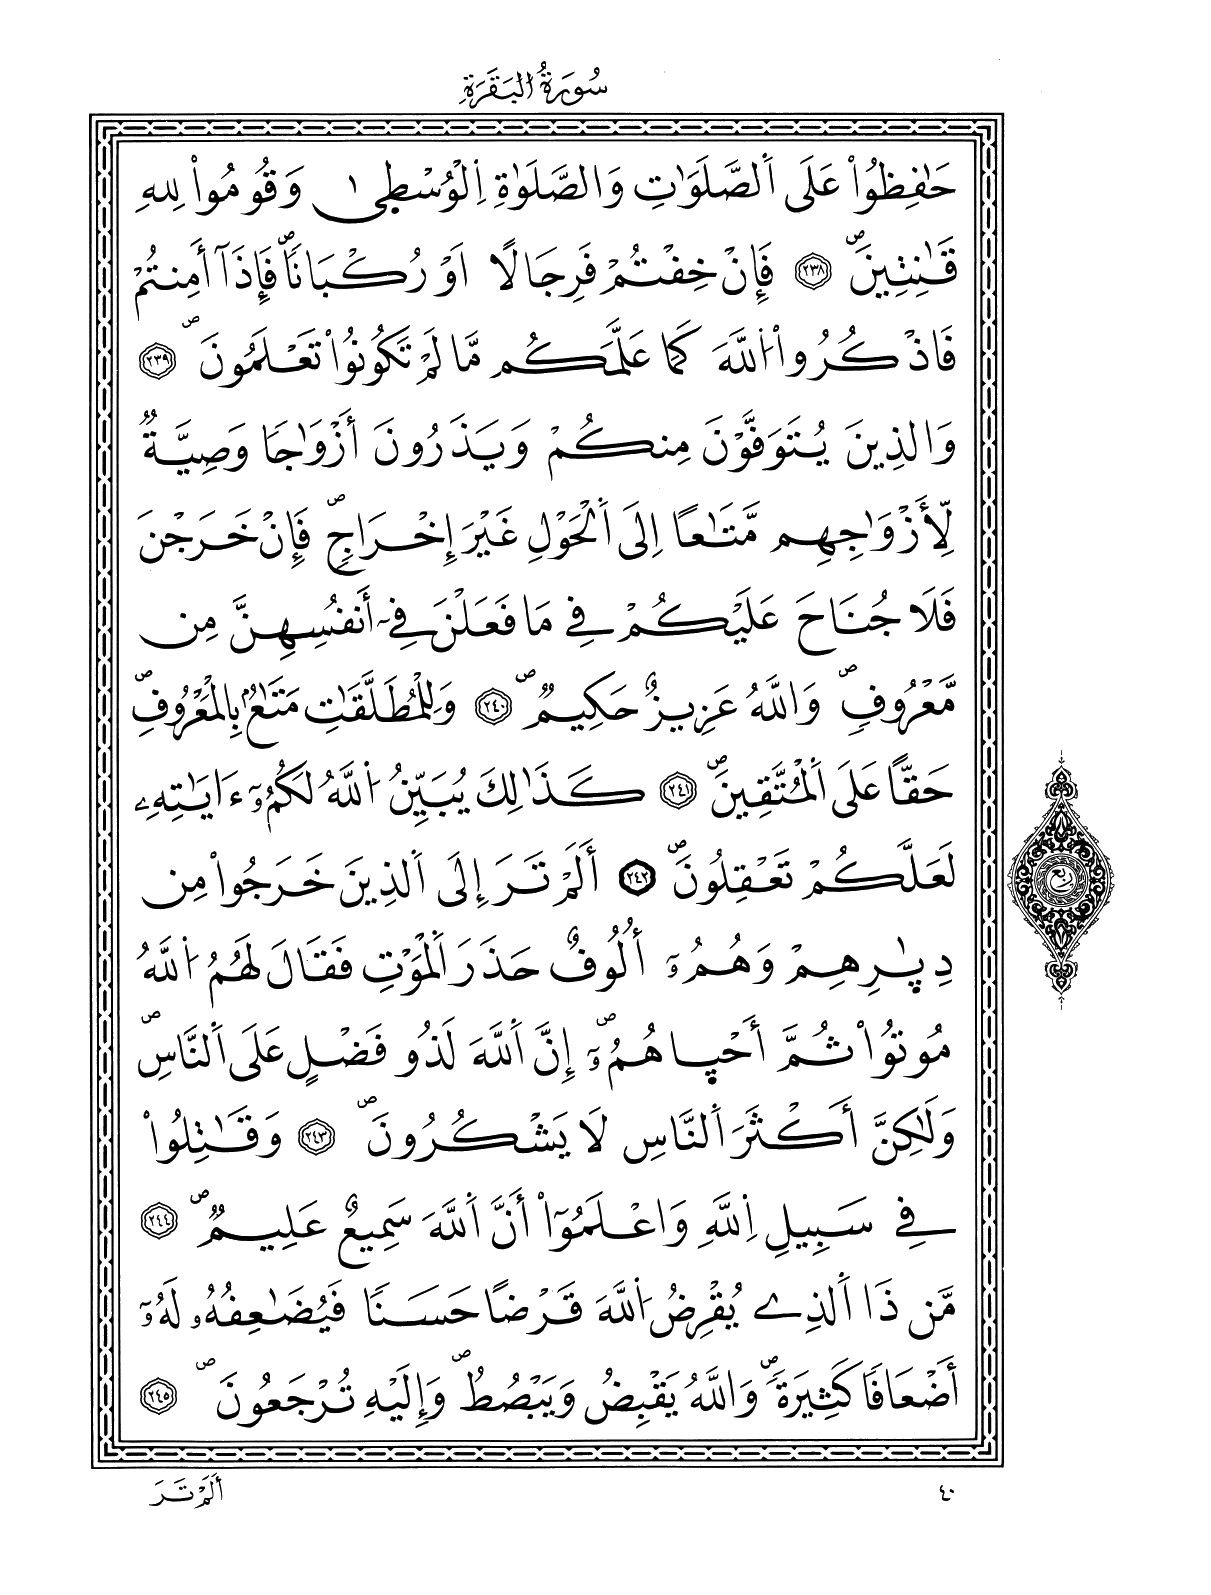 سُورَةُ البَقَرَةِ
حَٰفِظُواْ عَلَى اَ۬لصَّلَوَٰتِ وَالصَّلَوٰةِ اِ۬لْوُسْط۪ىٰ وَقُومُواْ لِلهِ
قَٰنِتِينَۖ ٢٣٨ فَإِنْ خِفْتُمْ فَرِجَالاً اَوْ رُكْبَاناٗۖ فَإِذَآ أَمِنتُمْ
فَاذْكُرُواْ اُ۬للَّهَ كَمَا عَلَّمَكُم مَّا لَمْ تَكُونُواْ تَعْلَمُونَۖ ٢٣٩
وَالذِينَ يُتَوَفَّوْنَ مِنكُمْ وَيَذَرُونَ أَزْوَٰجاٗ وَصِيَّةٞ
لِّأَزْوَٰجِهِم مَّتَٰعاً اِلَى اَ۬لْحَوْلِ غَيْرَ إِخْرَاجٖۖ فَإِنْ خَرَجْنَ
فَلَا جُنَاحَ عَلَيْكُمْ فِي مَا فَعَلْنَ فِےٓ أَنفُسِهِنَّ مِن
مَّعْرُوفٖۖ وَاللَّهُ عَزِيزٌ حَكِيمٞۖ ٢٤٠ وَلِلْمُطَلَّقَٰتِ مَتَٰعُۢ بِالْمَعْرُوفِۖ
حَقّاً عَلَى اَ۬لْمُتَّقِينَۖ ٢٤١ كَذَٰلِكَ يُبَيِّنُ اُ۬للَّهُ لَكُمُۥٓ ءَايَٰتِهِۦ
لَعَلَّكُمْ تَعْقِلُونَۖ ٢٤٢ أَلَمْ تَرَ إِلَى اَ۬لذِينَ خَرَجُواْ مِن
دِيٰ۪رِهِمْ وَهُمُۥٓ أُلُوفٌ حَذَرَ اَ۬لْمَوْتِ فَقَالَ لَهُمُ اُ۬للَّهُ
مُوتُواْ ثُمَّ أَحْي۪اهُمُۥٓۖ إِنَّ اَ۬للَّهَ لَذُو فَضْلٍ عَلَى اَ۬لنَّاسِۖ
وَلَٰكِنَّ أَكْثَرَ اَ۬لنَّاسِ لَا يَشْكُرُونَۖ ٢٤٣ وَقَٰتِلُواْ
فِي سَبِيلِ اِ۬للَّهِ وَاعْلَمُوٓاْ أَنَّ اَ۬للَّهَ سَمِيعٌ عَلِيمٞۖ ٢٤٤
مَّن ذَا اَ۬لذِے يُقْرِضُ اُ۬للَّهَ قَرْضاً حَسَناٗ فَيُضَٰعِفُهُۥ لَهُۥٓ
أَضْعَافاٗ كَثِيرَةٗۖ وَاللَّهُ يَقْبِضُ وَيَبْصُطُۖ وَإِلَيْهِ تُرْجَعُونَۖ ٢٤٥
ربع
٤٠
أَلَمْ تَرَ